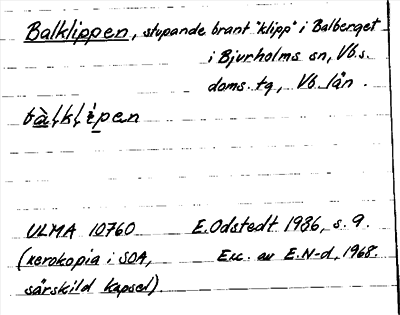 Balklippen, stupande brant "klipp" i Balberget
i Bjurholms sn, Vb.s.
doms. tg, Vb. län.
bàlklipen
ULMA 10760 E. Odstedt 1936, s. 9.
(xerokopia i SOA, Exc. av E. N-d, 1968.
särskild kapsel).